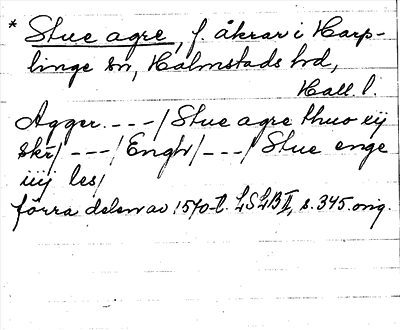 * Stue agre, f. åkrar i Harp-
linge sn, Halmstads hd,
Hall. l.
Agger. - - - / Stue agre thuo eÿ
skr/ - - - / Engh / - - - / Stue enge
iiij les/
förra delen av 1570-t. LSLB II, s. 345. orig.